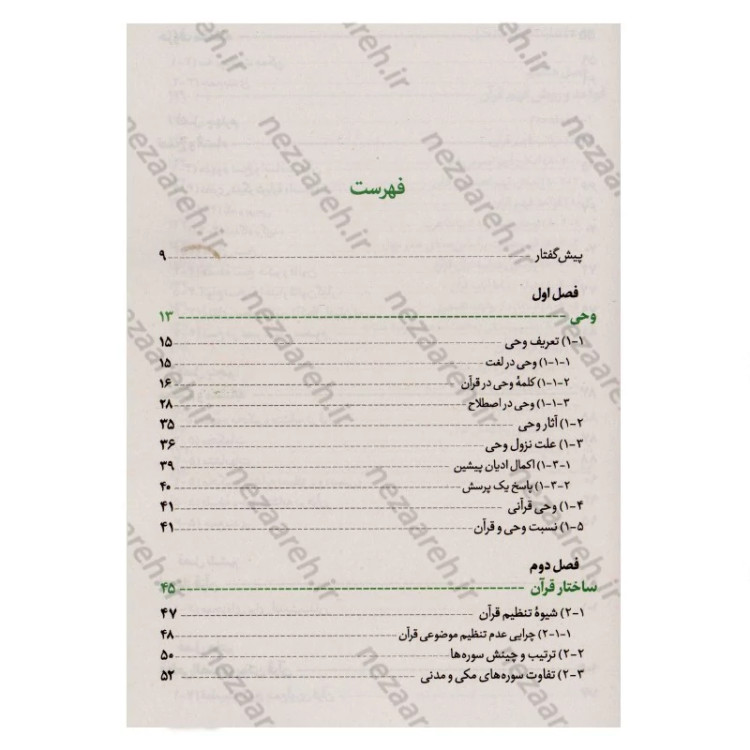 فهرست
پیش‌گفتار ۹
فصل اول
وحی ۱۳
۱-۱) تعریف وحی ۱۵
۱-۱-۱) وحی در لغت ۱۵
۱-۱-۲) کلمهٔ وحی در قرآن ۱۶
۱-۱-۳) وحی در اصطلاح ۲۸
۱-۲) آثار وحی ۳۵
۱-۳) علت نزول وحی ۳۶
۱-۳-۱) اکمال ادیان پیشین ۳۹
۱-۳-۲) پاسخ یک پرسش ۴۰
۱-۴) وحی قرآنی ۴۱
۱-۵) نسبت وحی و قرآن ۴۱
فصل دوم
ساختار قرآن ۴۵
۲-۱) شیوهٔ تنظیم قرآن ۴۷
۲-۱-۱) چرایی عدم تنظیم موضوعی قرآن ۴۸
۲-۲) ترتیب و چینش سوره‌ها ۵۰
۲-۳) تفاوت سوره‌های مکی و مدنی ۵۲
nezaareh.ir